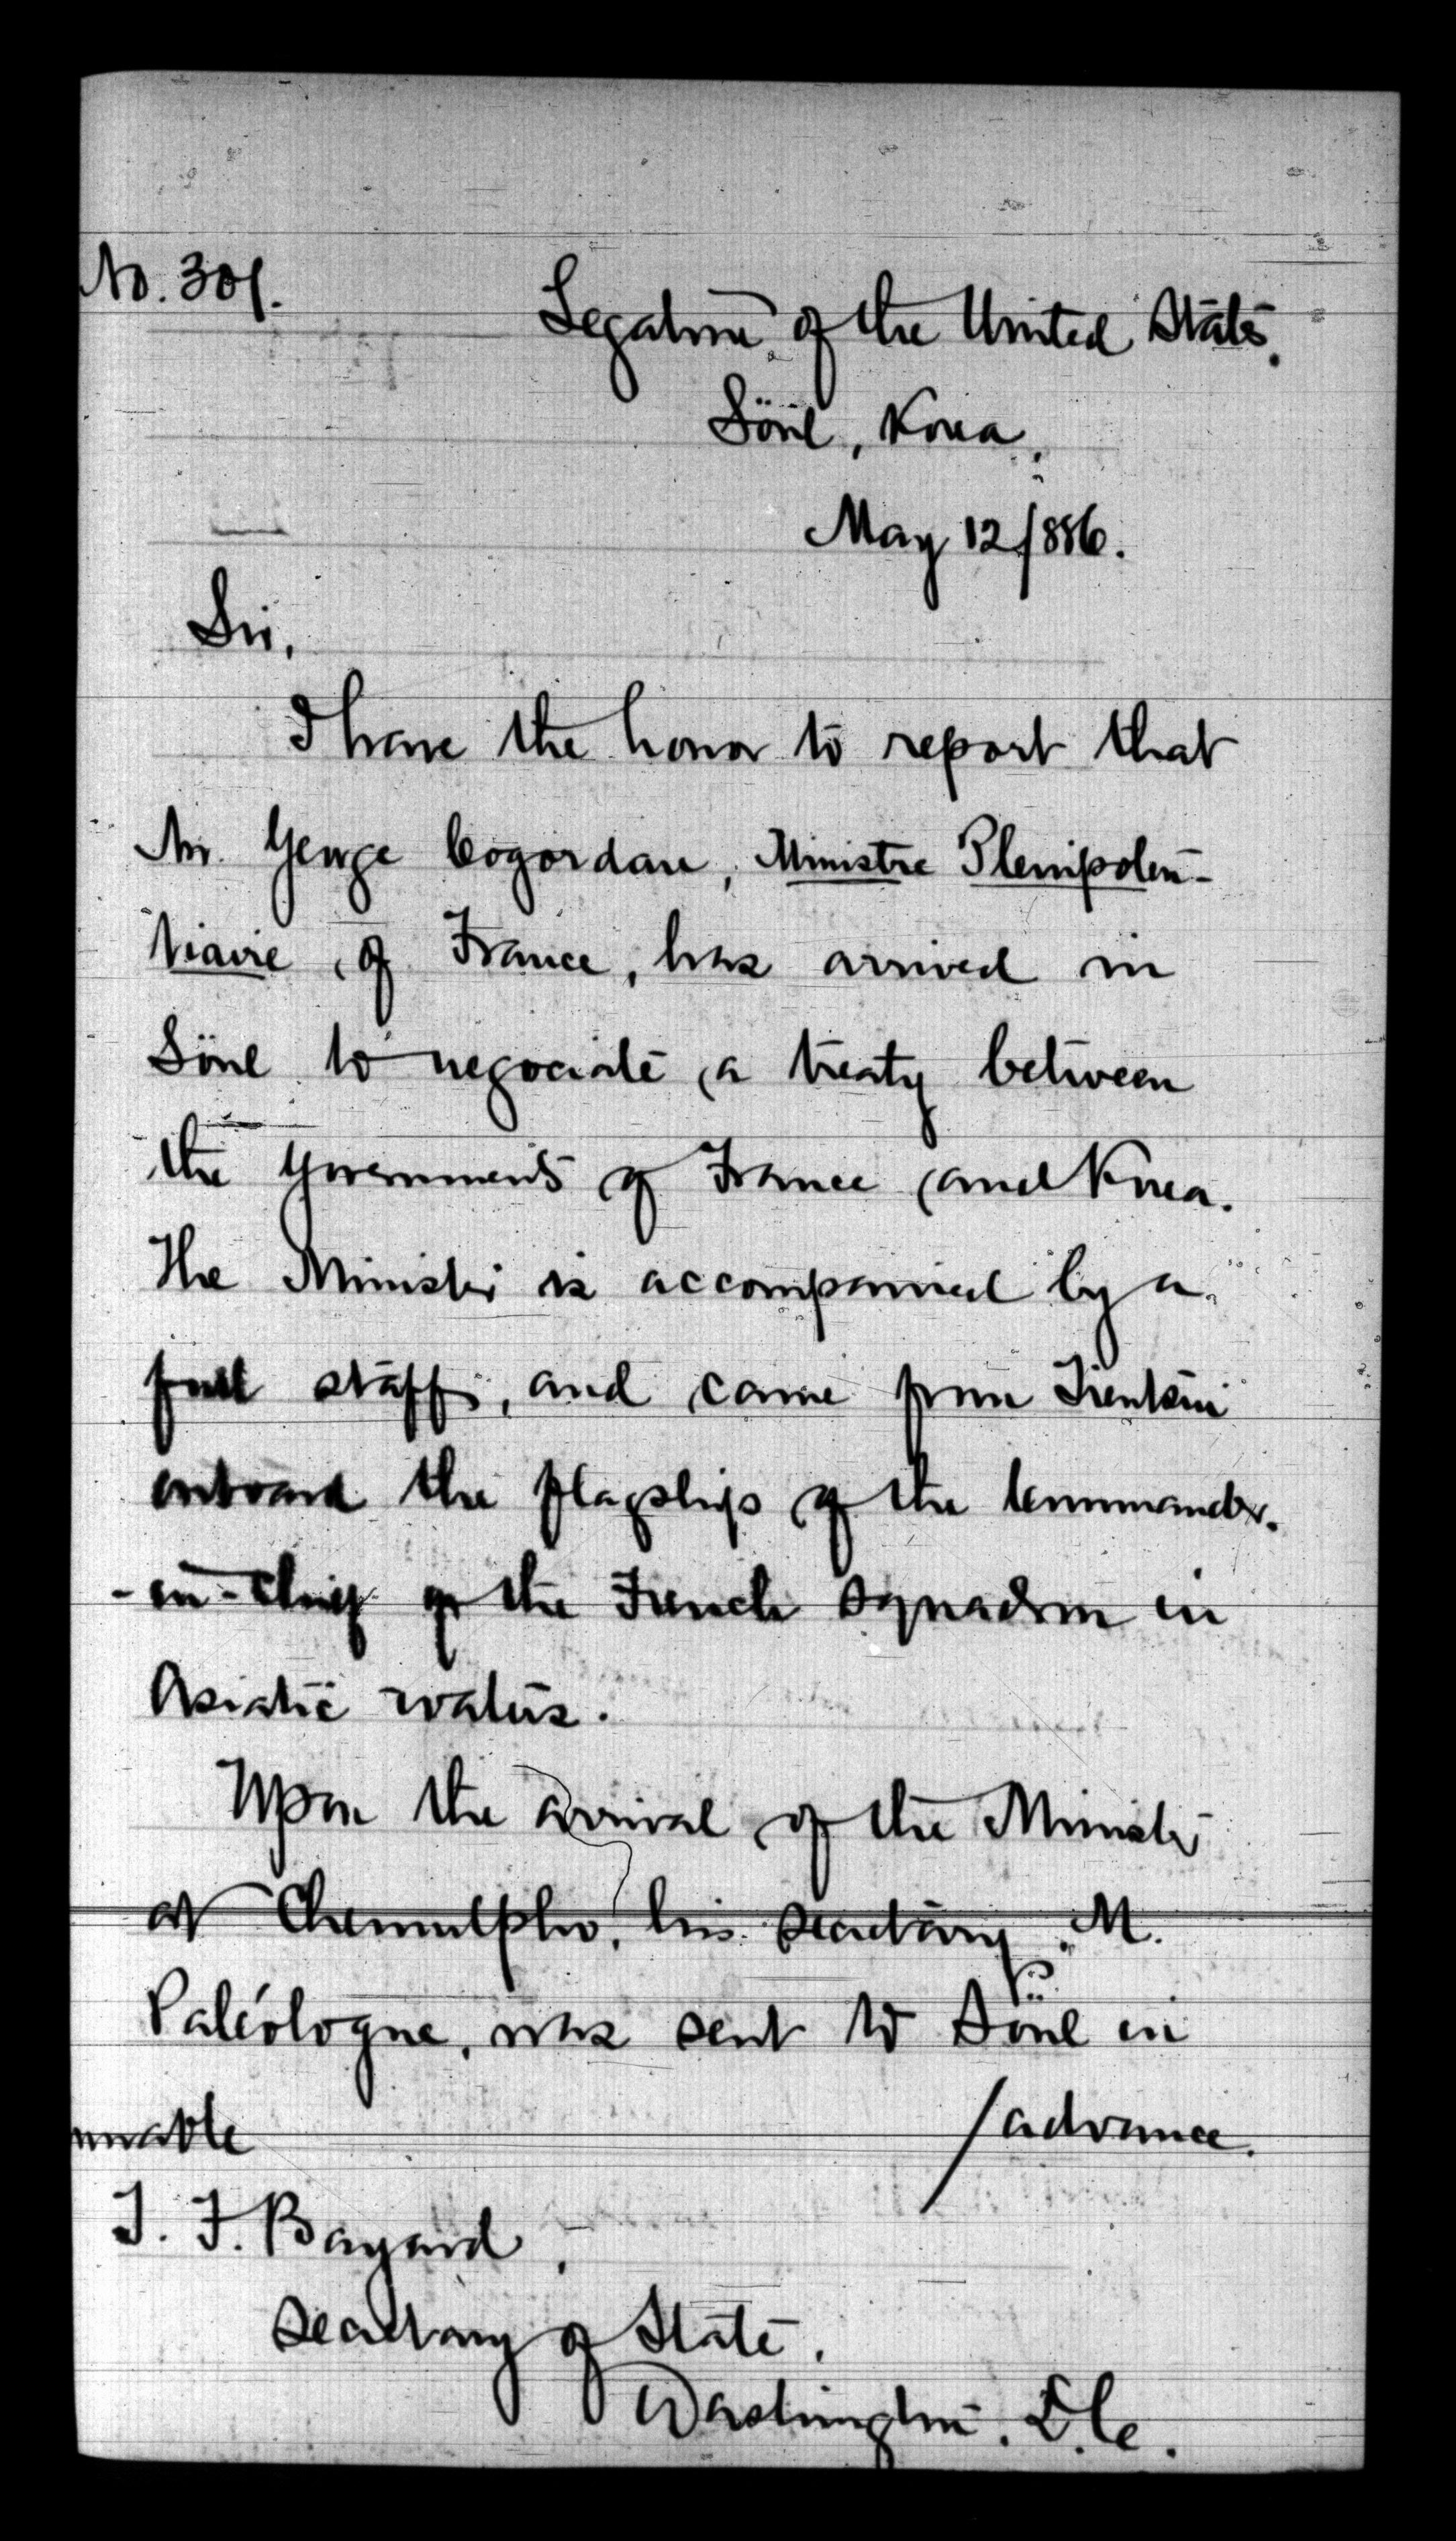 No. 301.
Legation of the United States.
Söul, Korea,
May 12/886.
Sir,
I have the honor to report that
Mr. George Cogordan, Ministre Plenipoten-
tiaire of France, has arrived in
Söul to negociate a treaty between
the Governments of France and Korea.
The Minister is accompanied by a
full staff, and came from Tientsin
onboard the flagship of the Commander-
-in-Chief of the French squadron in
Asiatic waters.
Upon the arrival of the Minister
at Chemulpho, his secretary, M.
Paléologue, was sent to Söul in
/advance.
T. F. Bayard,
Secretary of State,
Washington, D.C.